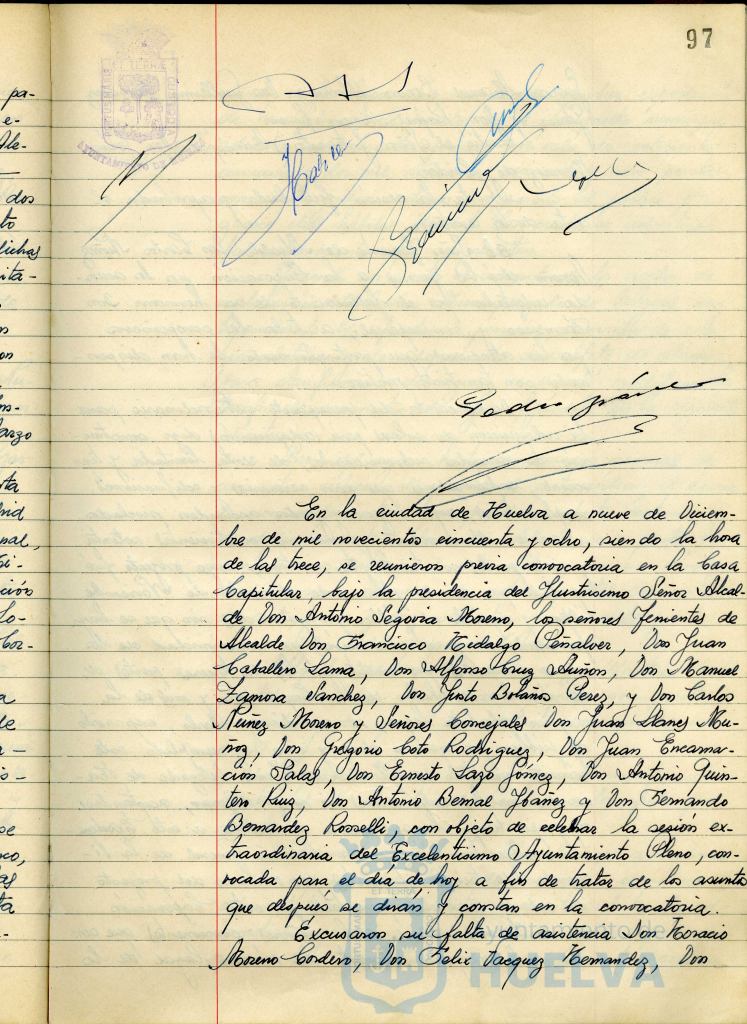 97
pa-
e-
Ale-
dos
to
dichas
ita-
on
ns-
arzo
rta
rid
nal,
ción
Lo-
Cor-
a
de
se
co,
as
ta
AYUNTAMIENTO DE HUELVA
En la ciudad de Huelva a nueve de Diciem-
bre de mil novecientos cincuenta y ocho, siendo la hora
de las trece, se reunieron previa convocatoria en la Casa
Capitular, bajo la presidencia del Ilustrisimo Señor Alcal-
de Don Antonio Segovia Moreno, los señores Tenientes de
Alcalde Don Francisco Hidalgo Peñalver, Don Juan
Caballero Lama, Don Alfonso Cruz Auñon, Don Manuel
Zamora Sanchez, Don Justo Bolaños Perez, y Don Carlos
Nuñez Moreno y Señores Concejales Don Juan Llanes Mu-
ñoz, Don Gregorio Coto Rodriguez, Don Juan Encarna-
ción Salas, Don Ernesto Lazo Gómez, Don Antonio Quin-
tero Ruiz, Don Antonio Bernal Ibáñez y Don Fernando
Bernardez Rosselli, con objeto de celebrar la sesión ex-
traordinaria del Excelentísimo Ayuntamiento Pleno, con-
vocada para el día de hoy a fin de tratar de los asuntos
que después se dirán y constan en la convocatoria.
Excusaron su falta de asistencia Don Horacio
Moreno Cordero, Don Felix Vazquez Hernandez, Don
Ayuntamiento de
HUELVA